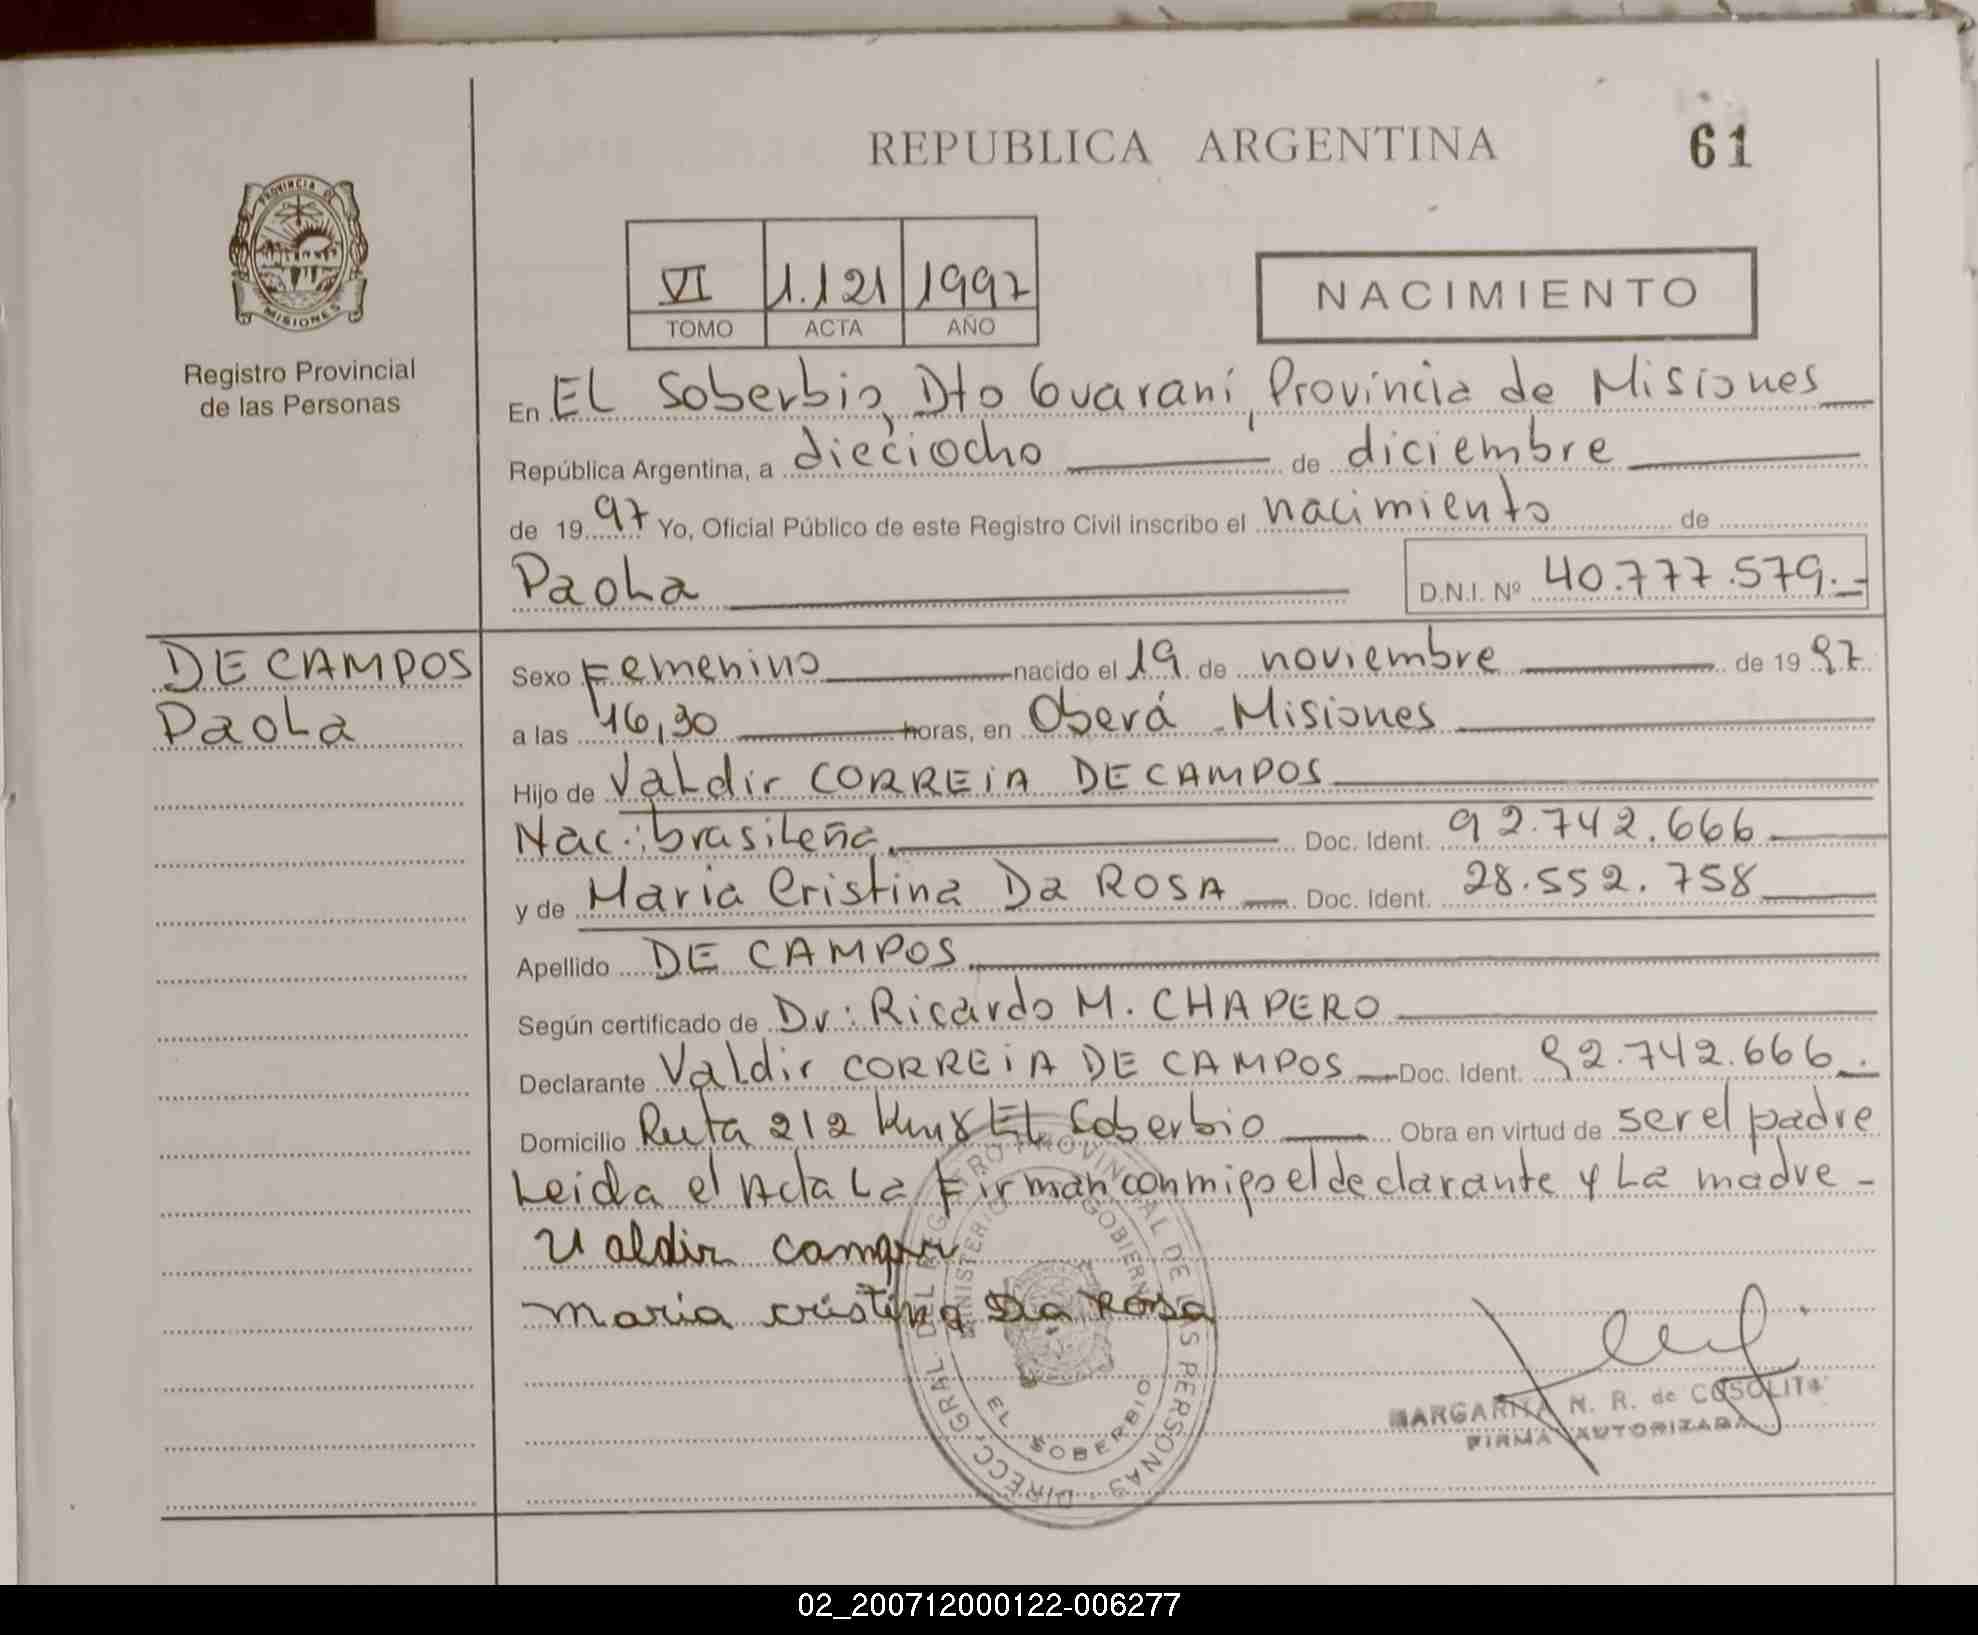 REPUBLICA ARGENTINA
61
PROVINCIA DE
MISIONES
Registro Provincial
de las Personas
VI 1.121 1997
TOMO ACTA AÑO
NACIMIENTO
En EL Soberbio, Dto Guaraní, Provincia de Misiones
República Argentina, a dieciocho de diciembre
de 1997 Yo, Oficial Público de este Registro Civil inscribo el nacimiento de
PaoLa
D.N.I. Nº 40.777.579.-
DE CAMPOS
PaoLa
Sexo Femenino nacido el 19 de noviembre de 1997
a las 16,30 horas, en Oberá - Misiones
Hijo de VaLdir CORREiA DE CAMPOS
Nac.: brasiLeña. Doc. Ident. 92.742.666
y de Maria Cristina Da ROSA Doc. Ident. 28.552.758
Apellido DE CAMPOS
Según certificado de Dr: Ricardo M. CHAPERO
Declarante VaLdir CORREiA DE CAMPOS Doc. Ident. 92.742.666.
Domicilio Ruta 212 Km 8 EL Soberbio Obra en virtud de ser el padre
Leida el Acta La Firman conmigo el declarante y La madre -
Valdir campos
maria cristina Da Rosa
DIRECC. GRAL. DEL REGISTRO PROVINCIAL DE LAS PERSONAS
MINISTERIO GOBIERNO
EL SOBERBIO
MARGARITA N. R. de COSOLITO
FIRMA AUTORIZADA
02_200712000122-006277